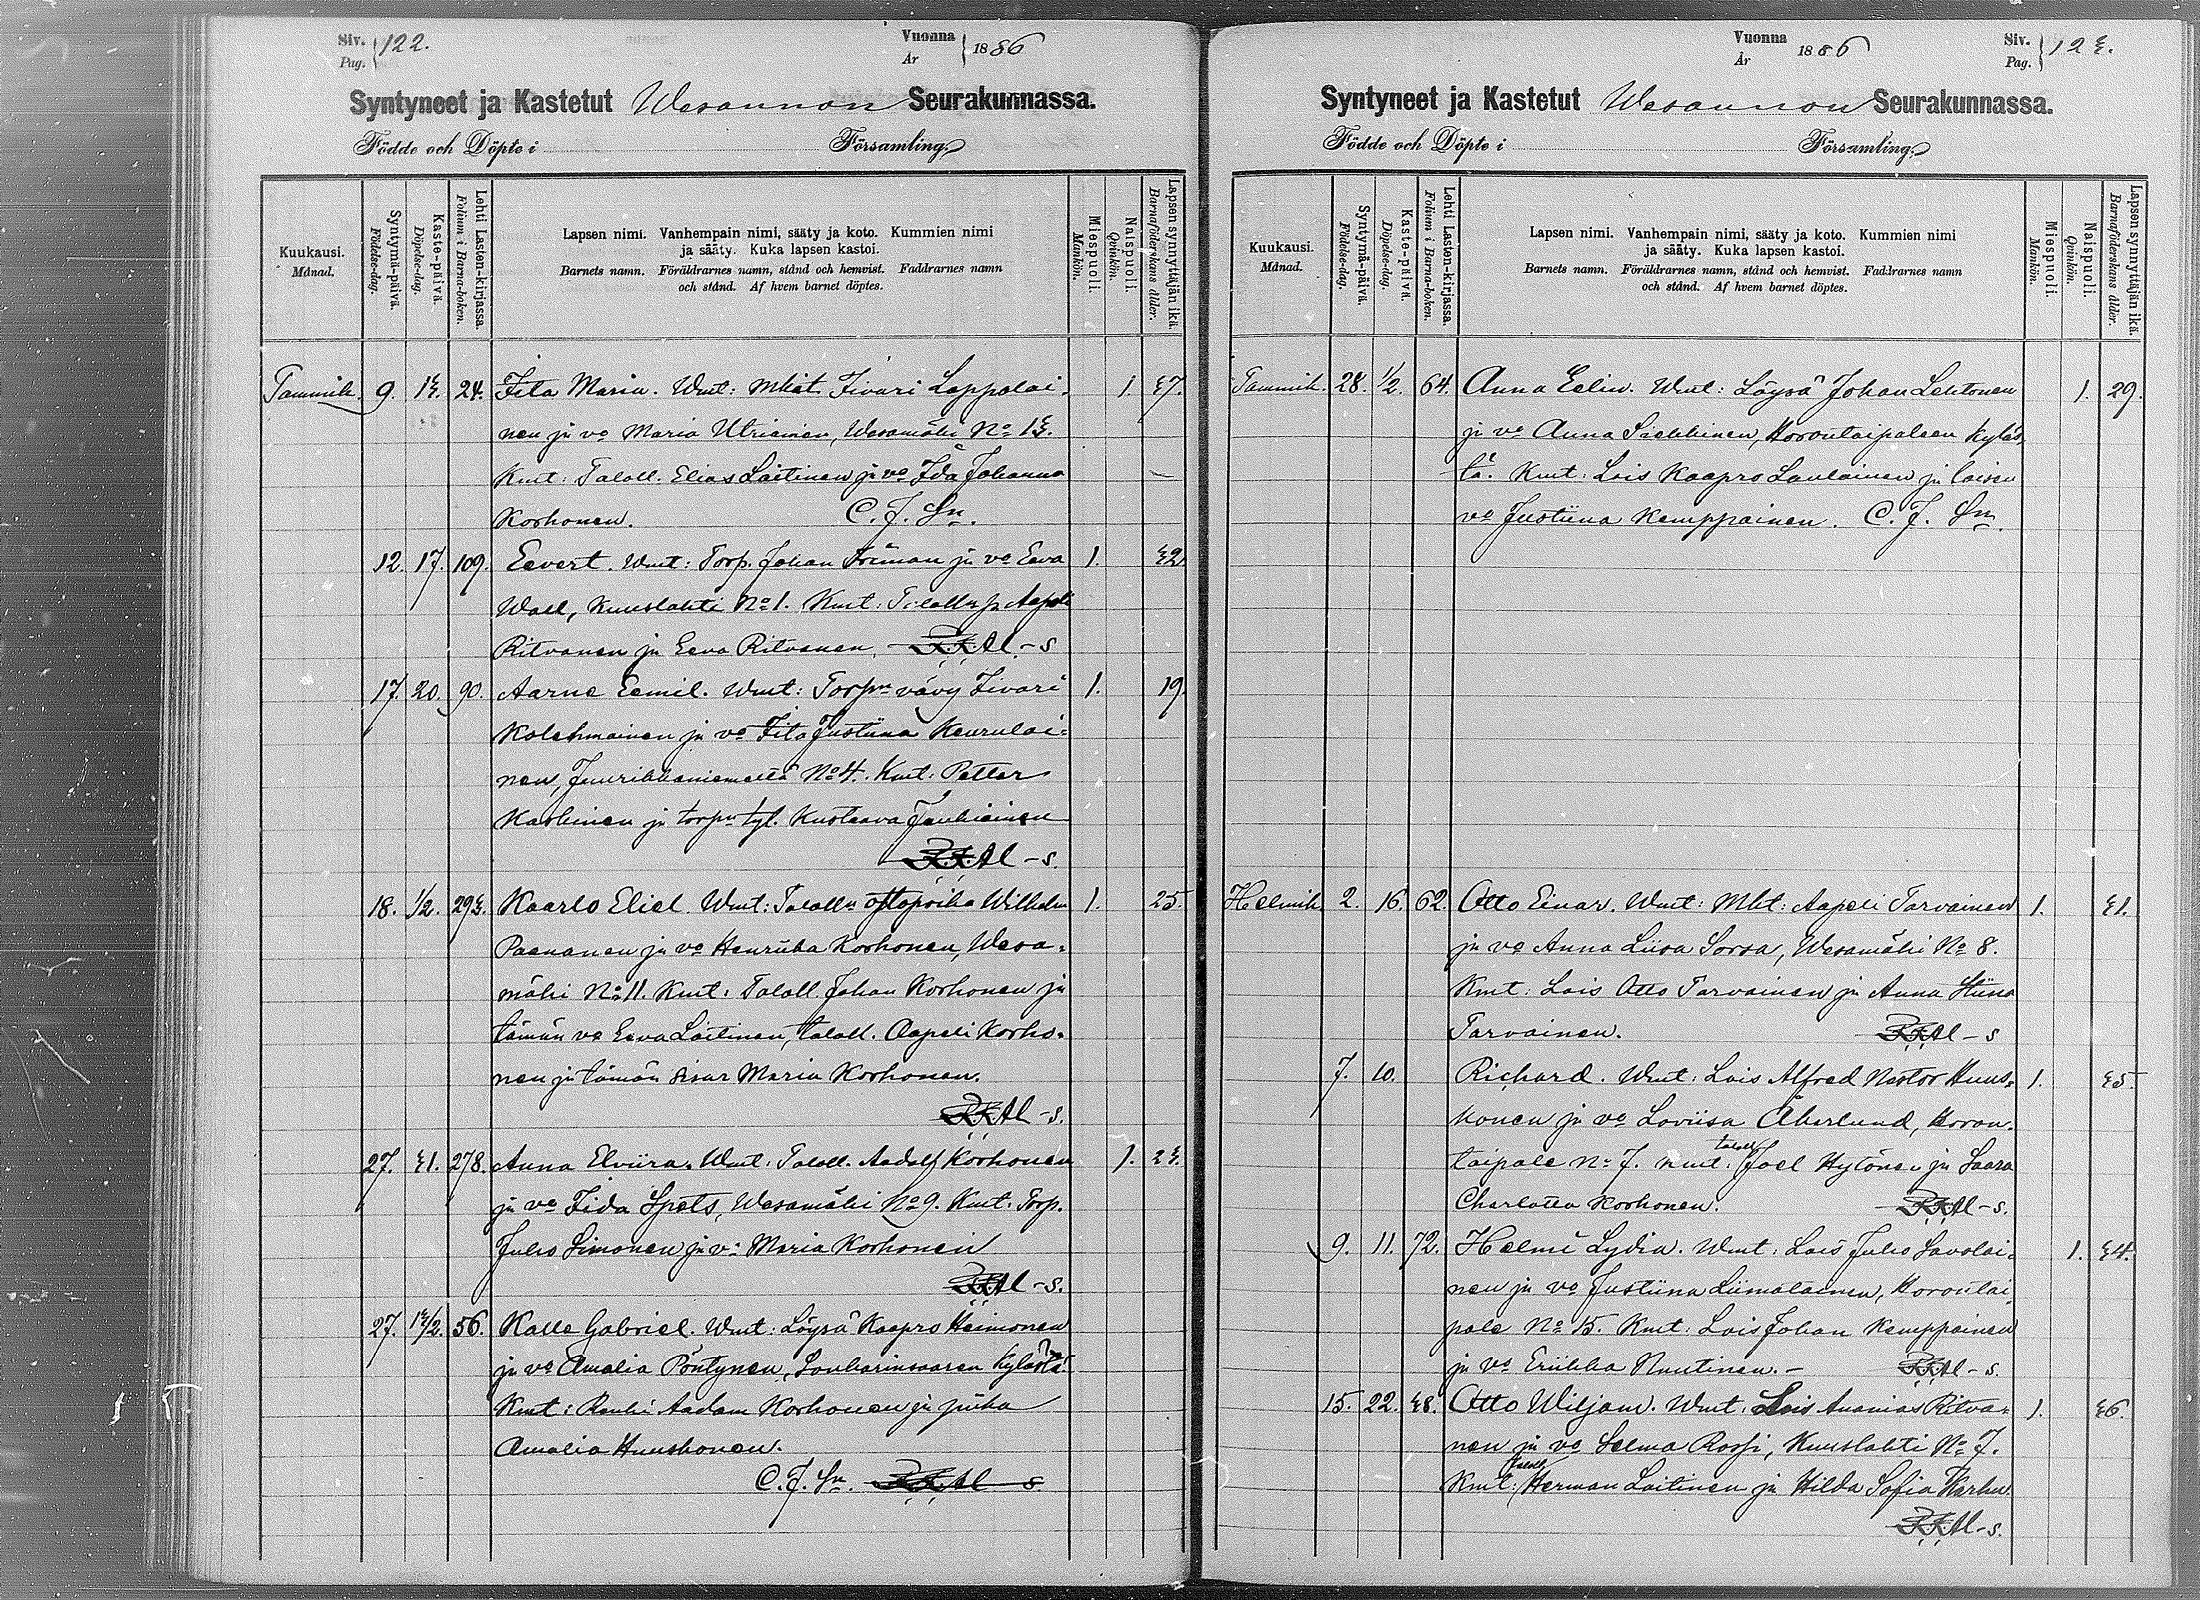 Siv. 122.
Pag.
Vuonna 1886
År
Syntyneet ja Kastetut Wesannon Seurakunnassa.
Födde och Döpte i Församling.
Kuukausi.
Månad.
Syntymä-päivä.
Födelse-dag.
Kaste-päivä.
Döpelse-dag.
Lehti Lasten-kirjassa.
Folium i Barna-boken.
Lapsen nimi. Vanhempain nimi, sääty ja koto. Kummien nimi
ja sääty. Kuka lapsen kastoi.
Barnets namn. Föräldrarnes namn, stånd och hemvist. Faddrarnes namn
och stånd. Af hvem barnet döptes.
Miespuoli.
Mankön.
Naispuoli.
Qvinkön.
Lapsen synnyttäjän ikä.
Barnaföderskans ålder.
Tammik. 9. 13. 24. Iita Maria. Wmt: Mkit. Iivari Lappalai- 1. 37.
nen ja vo Maria Utriainen, Wesamäki No 13.
Kmt: Taloll. Elias Laitinen ja vo Ida Johanna
Korhonen. C. J. Sn.
12. 17. 109. Eevert. Wmt: Torp. Johan Friman ja vo Eeva 1. 32
Wall, Kuuslahti No 1. Kmt: Aapeli
Ritvanen ja Eeva Ritvanen. Al-s
17. 20. 90. Aarne Eemil. Wmt: Torpn vävy Iivari 1. 19.
Kolehmainen ja vo Iita Justiina Keurulai-
nen, Juurikkaniemeltä No 4. Kmt: Petter
Karhinen ja torpn tyt. Kustaava Jauhiainen
Al-s.
18. 1/2. 293. Kaarlo Eliel. Wmt: Talolln ottopoika Wilhelm 1. 25.
Paananen ja vo Henriika Korhonen, Wesa-
mäki No 11. Kmt: Taloll. Johan Korhonen ja
tämän vo Eeva Laitinen, taloll. Aapeli Korho-
nen ja tämän sisar Maria Korhonen.
Al-s.
27. 31. 278. Anna Elviira. Wmt: Taloll. Aadolf Korhonen 1. 23.
ja vo Iida Spets, Wesamäki No 9. Kmt: Torp.
Juho Simonen ja vo Maria Korhonen
Al-s.
27. 13/2. 56. Kalle Gabriel. Wmt: Löysä Kaapro Heimonen
ja vo Amalia Pöntynen, Sonkarinsaaren kylästä.
Kmt: Renki Aadam Korhonen ja piika
Amalia Huuskonen.
C. J. Sn. Al-s
Vuonna 1886
År
Siv. 123.
Pag.
Syntyneet ja Kastetut Wesannon Seurakunnassa.
Födde och Döpte i Församling.
Kuukausi.
Månad.
Syntymä-päivä.
Födelse-dag.
Kaste-päivä.
Döpelse-dag.
Lehti Lasten-kirjassa.
Folium i Barna-boken.
Lapsen nimi. Vanhempain nimi, sääty ja koto. Kummien nimi
ja sääty. Kuka lapsen kastoi.
Barnets namn. Föräldrarnes namn, stånd och hemvist. Faddrarnes namn
och stånd. Af hvem barnet döptes.
Miespuoli.
Mankön.
Naispuoli.
Qvinkön.
Lapsen synnyttäjän ikä.
Barnaföderskans ålder.
Tammik. 28. 1/2. 64. Anna Eelin. Wmt: Löysä Johan Lehtonen 1. 29.
ja vo Anna Siekkinen, Horontaipaleen kyläs-
tä. Kmt: Lois Kaapro Laulainen ja loisen
vo Justiina Kemppainen. C. J. Sn.
Helmik. 2. 16. 62. Otto Einar. Wmt: Mkt: Aapeli Tarvainen 1. 31.
ja vo Anna Liisa Sorsa, Wesamäki No 8.
Kmt: Lois Otto Tarvainen ja Anna Stiina
Tarvainen. Al-s
7. 10. Richard. Wmt: Lois Alfred Nestor Huus- 1. 35.
konen ja vo Loviisa Åkerlund, Horon-
taipale No 7. Kmt: taloll. Joel Hytönen ja Saara
Charlotta Korhonen. Al-s.
9. 11. 72. Helmi Lydia. Wmt: Lois Juho Savolai- 1. 34.
nen ja vo Justiina Liimatainen, Horontai-
pale No 15. Kmt: Lois Johan Kemppainen
ja vo Eriikka Nuutinen. - Al-s.
15. 22. 38. Otto Wiljam. Wmt: Lois Ananias Ritva- 1. 36.
nen ja vo Selma Rossi, Kuuslahti No 7.
Kmt: taloll. Herman Laitinen ja Hilda Sofia Karhu.
Al-s.